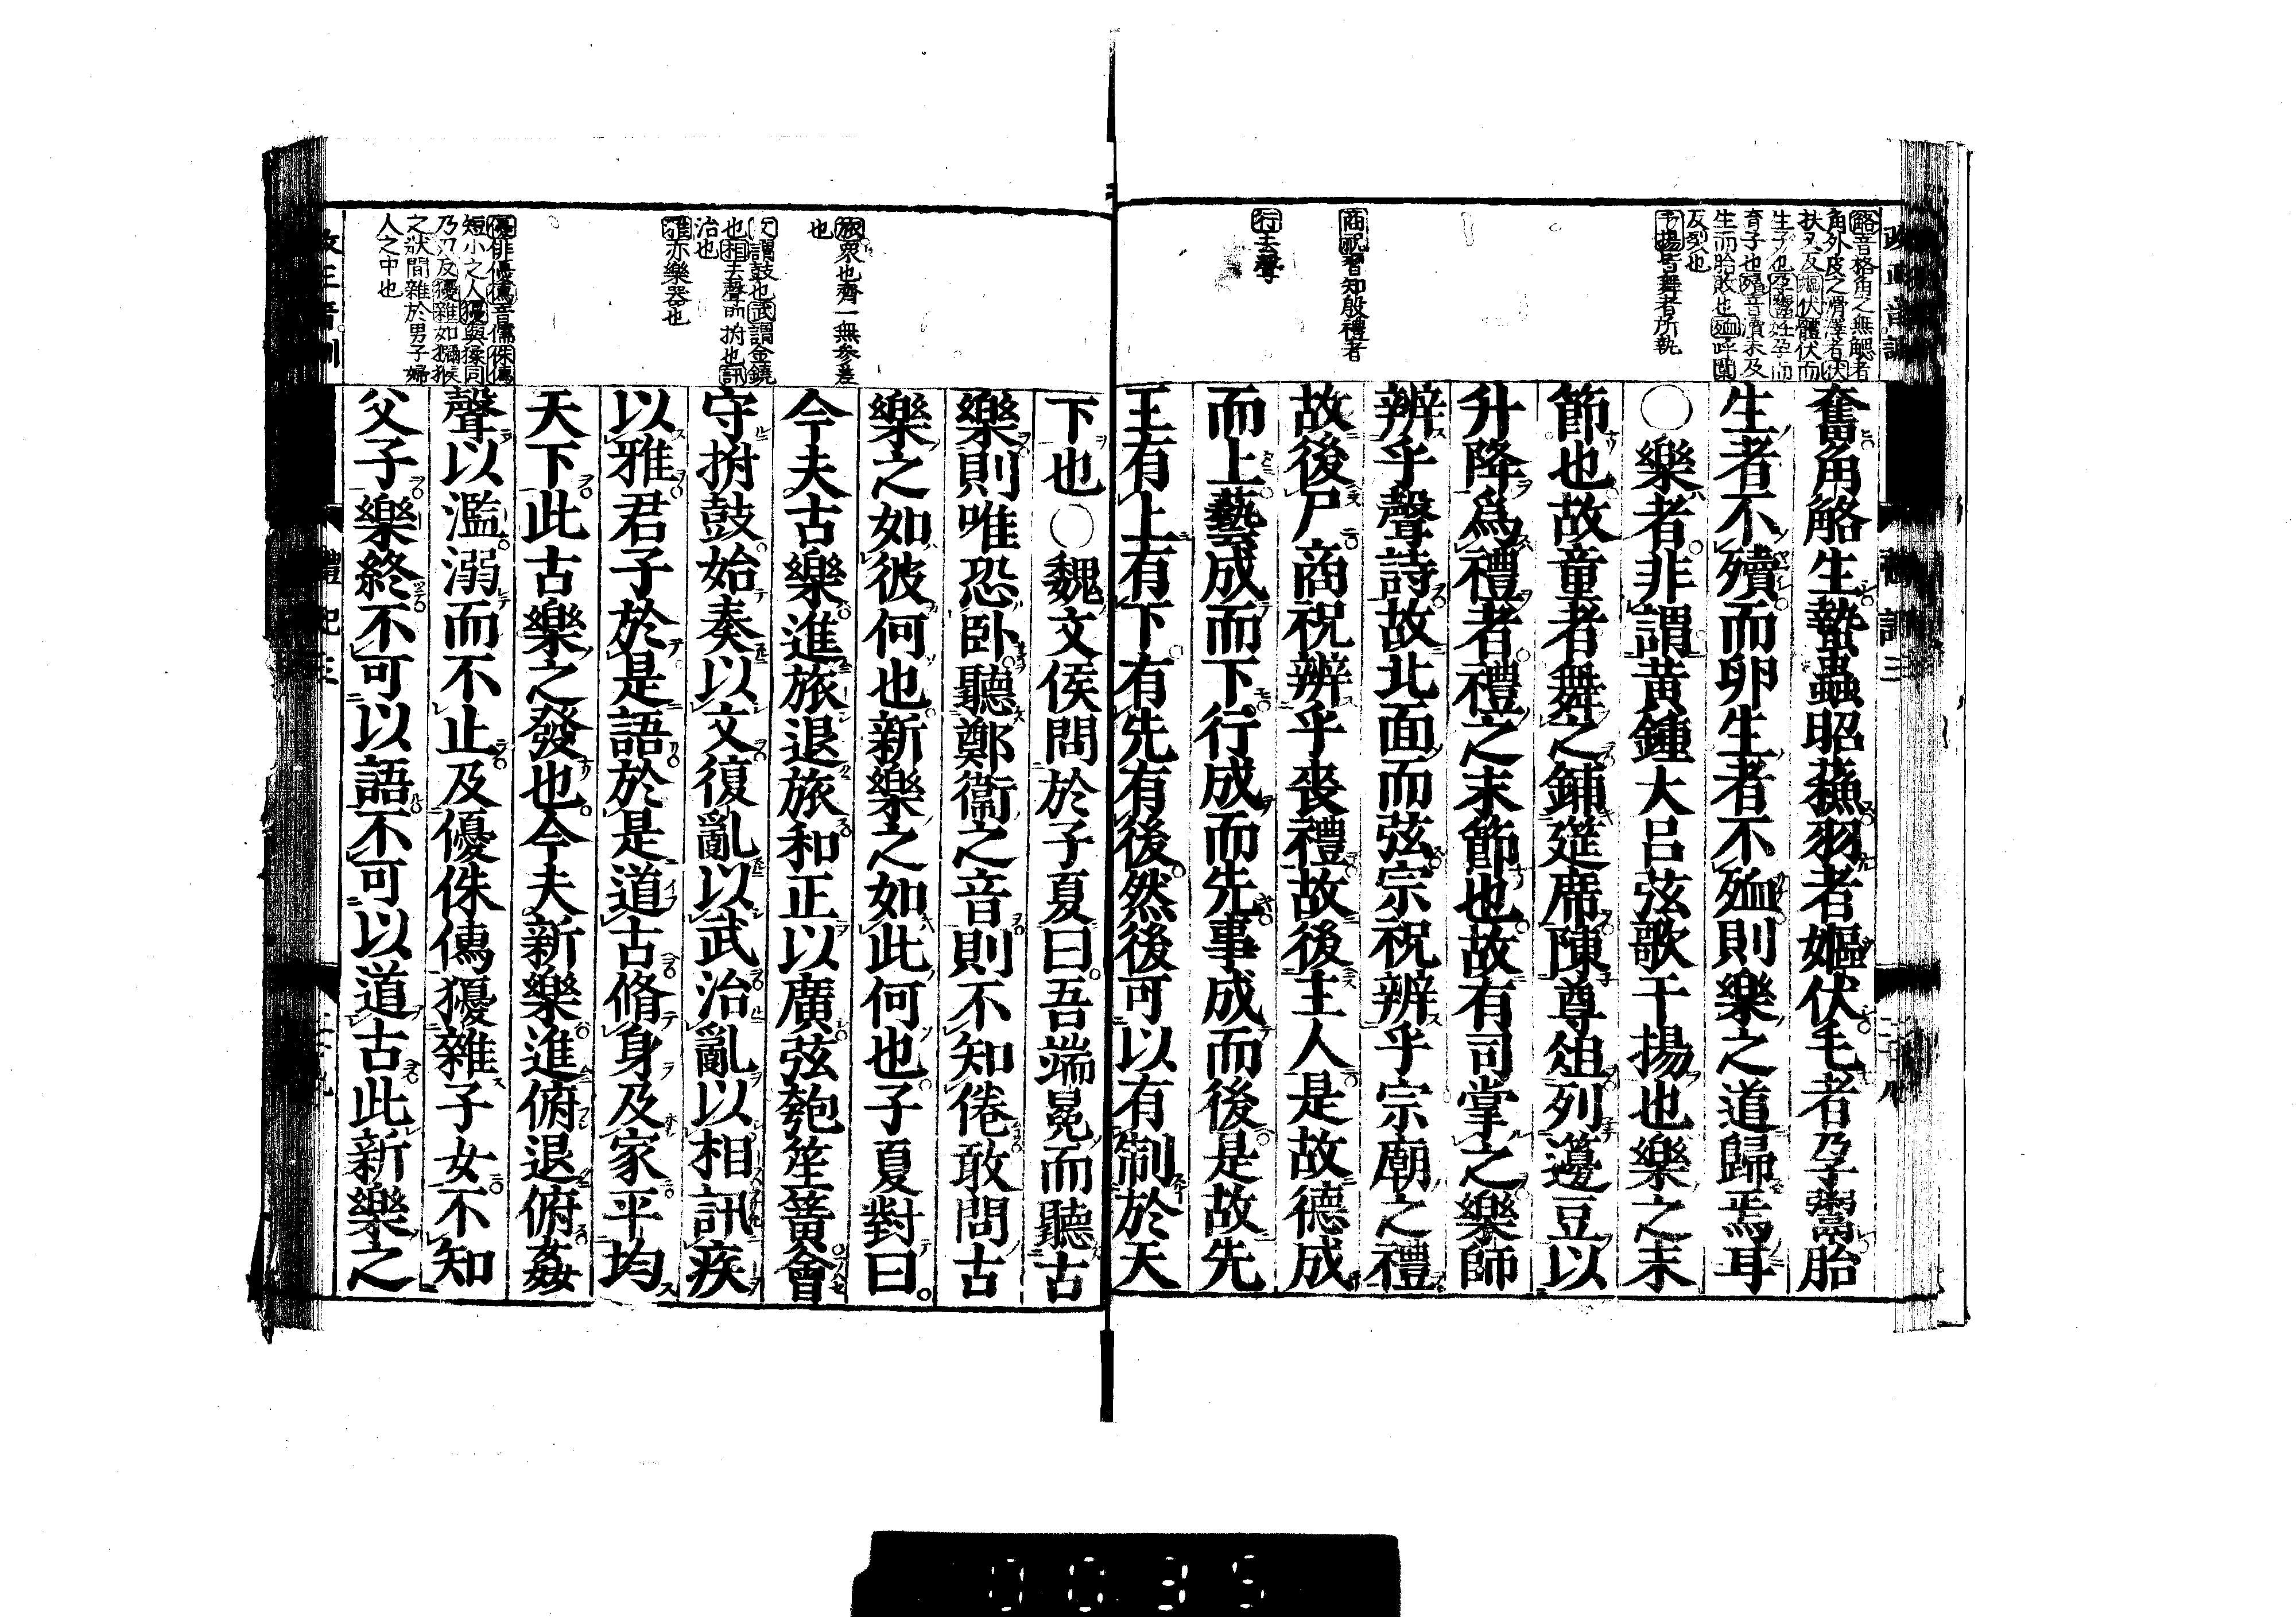 觡音格角之無䚡者
角外皮之滑澤者伏
扶又反嫗伏體伏而
生子也孕鬻妊孕而
育子也殰音瀆未及
生而胎敗也殈呼闃
反裂也
干揚皆舞者所執
商祝習知殷禮者
行去聲
奮角觡生蟄蟲昭蘓羽者嫗伏毛者孕鬻胎
生者不殰而卵生者不殈則樂之道歸焉耳
〇樂者非謂黄鍾大呂弦歌干揚也樂之末
節也故童者舞之鋪筵席陳尊俎列籩豆以
升降爲禮者禮之末節也故有司掌之樂師
辨乎聲詩故北面而弦宗祝辨乎宗廟之禮
故後尸商祝辨乎喪禮故後主人是故德成
而上藝成而下行成而先事成而後是故先
王有上有下有先有後然後可以有制於天
旅衆也齊一無參差
也
文謂鼓也武謂金鐃
也相去聲即拊也訊
治也
雅亦樂器也
優俳優侏音儒侏儒
短小之人獶與猱同
乃刀反獶雜如獼猴
之狀間雜於男子婦
人之中也
下也〇魏文侯問於子夏曰吾端冕而聽古
樂則唯恐卧聽鄭衞之音則不知倦敢問古
樂之如彼何也新樂之如此何也子夏對曰
今夫古樂進旅退旅和正以廣弦匏笙簧會
守拊鼓始奏以文復亂以武治亂以相訊疾
以雅君子於是語於是道古脩身及家平均
天下此古樂之發也今夫新樂進俯退俯姦
聲以濫溺而不止及優侏儒獶雜子女不知
父子樂終不可以語不可以道古此新樂之
0035